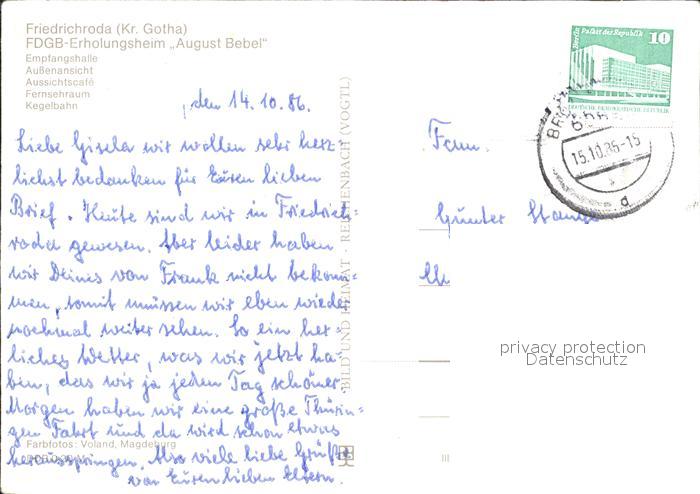 Friedrichroda (Kr. Gotha)
FDGB-Erholungsheim „August Bebel“
Empfangshalle
Außenansicht
Aussichtscafé
Fernsehraum
Kegelbahn
den 14.10.86.
Liebe Gisela wir wollen sehr herz-
lichst bedanken für Euren lieben
Brief. Heute sind wir in Friedrich-
roda gewesen. Aber leider haben
wir Deines von Frank nicht bekom-
men, somit müssen wir eben wieder
nochmal weiter sehen. So ein her-
liches Wetter, was wir jetzt ha-
ben, das wir ja jeden Tag schöner
Morgen haben wir eine große Thürin-
gen Fahrt und da wird schon etwas
herausspringen. Also viele liebe Grüße
von Euren lieben Eltern.
Farbfotos: Voland, Magdeburg
BILD UND HEIMAT · REICHENBACH (VOGTL)
Fam.
Günter
Berlin, Palast der Republik
10
DEUTSCHE DEMOKRATISCHE REPUBLIK
15.10.86-15
d
privacy protection
Datenschutz
III